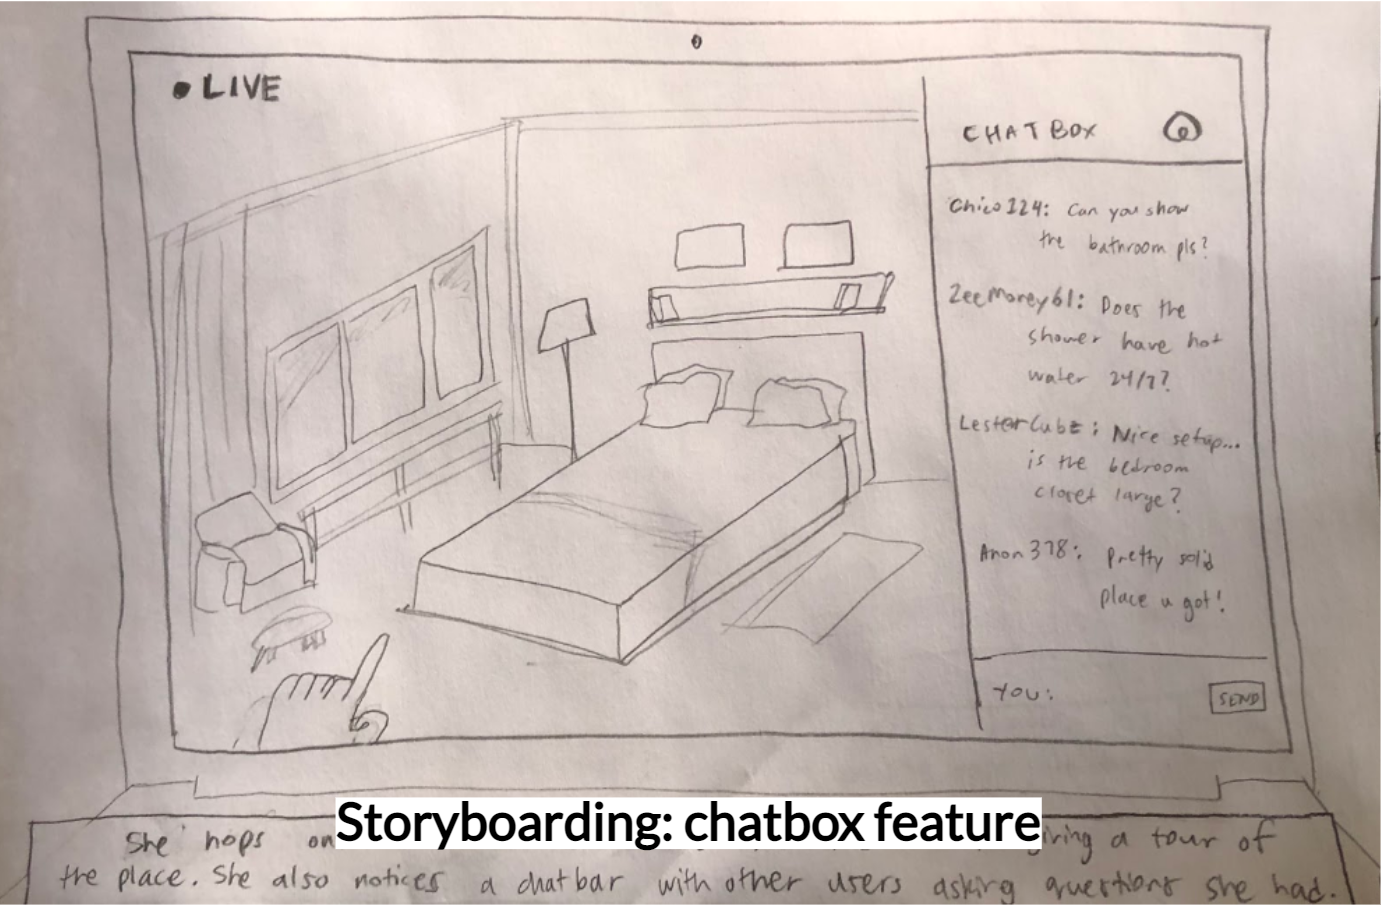 LIVE
CHATBOX
Chico124: Can you show
the bathroom pls?
ZeeMorey61: Does the
shower have hot
water 24/7?
LesterCubz: Nice setup...
is the bedroom
closet large?
Anon378: Pretty solid
place u got!
YOU:
SEND
Storyboarding: chatbox feature
She hops on giving a tour of
the place. She also notices a chatbar with other users asking questions she had.